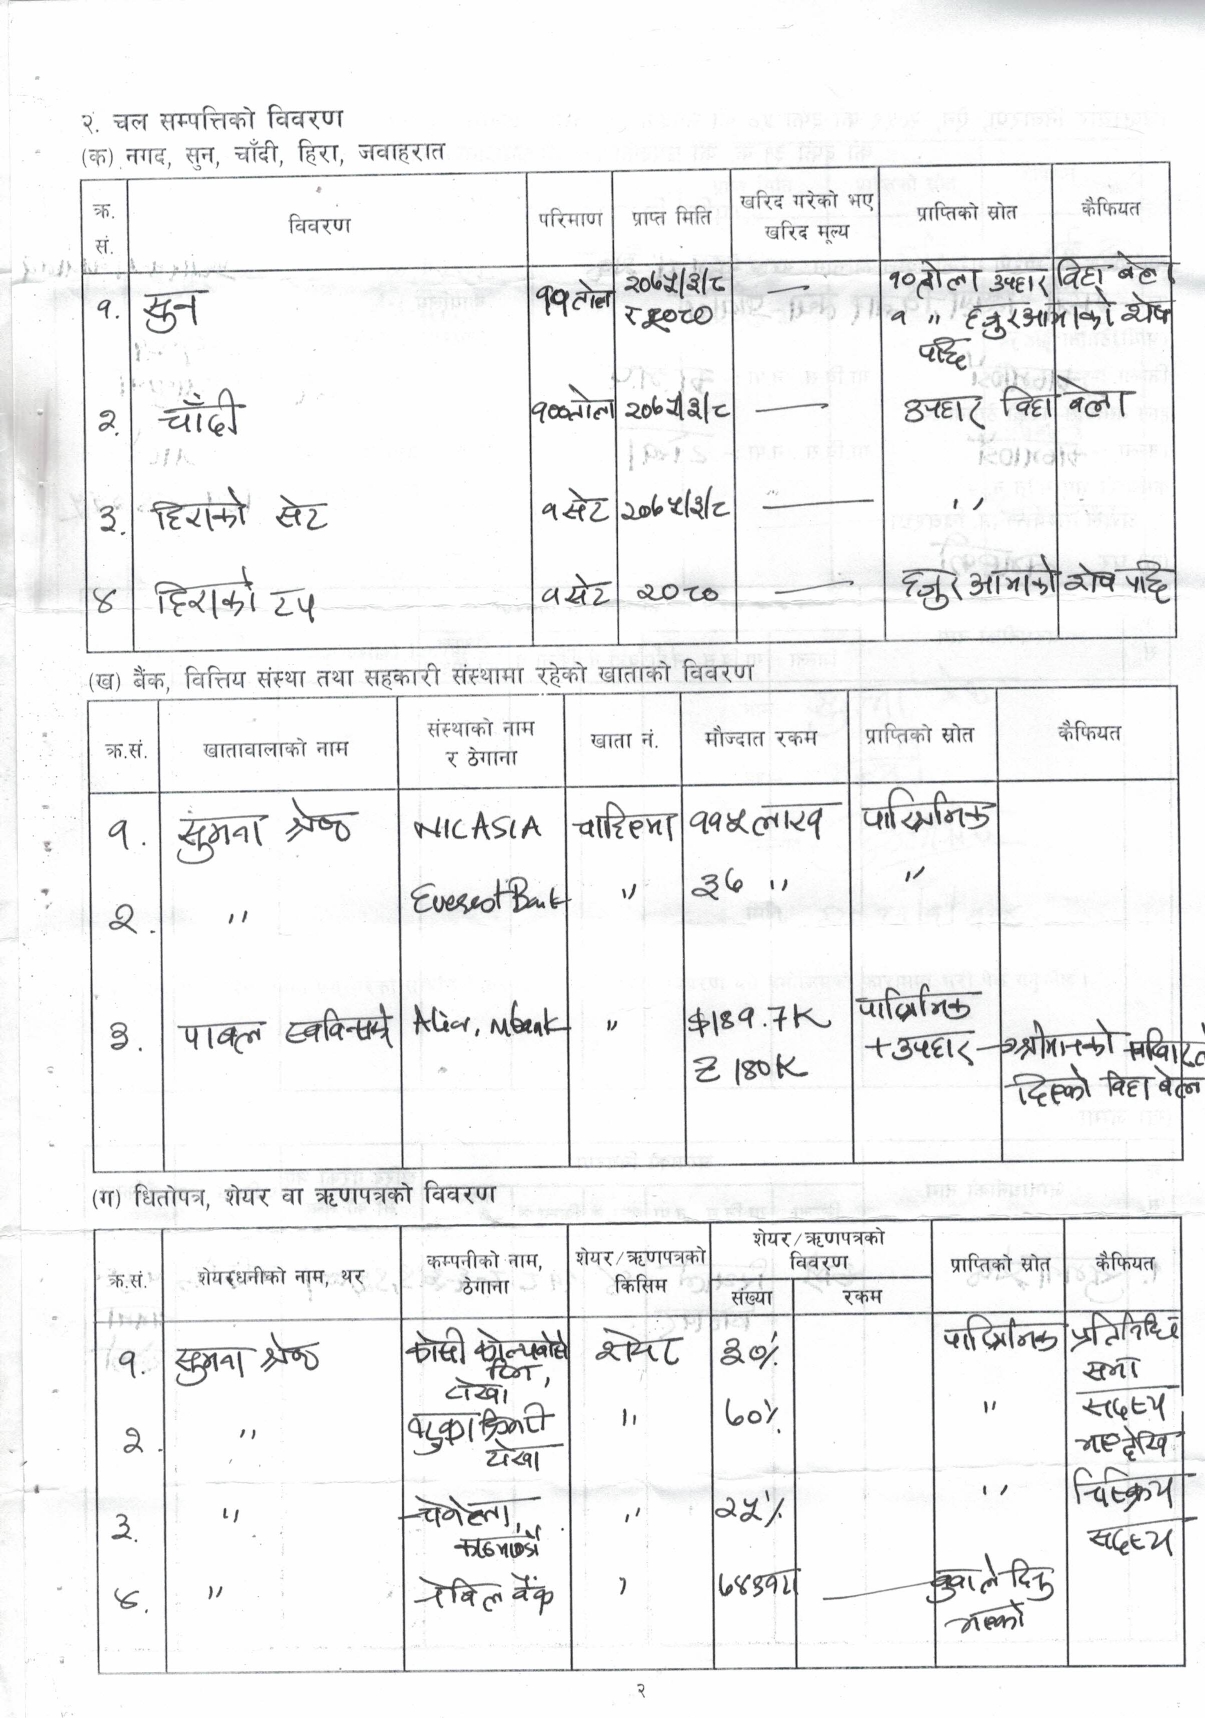 २. चल सम्पत्तिको विवरण
(क) नगद, सुन, चाँदी, हिरा, जवाहरात
क्र. सं. विवरण परिमाण प्राप्त मिति खरिद गरेको भए खरिद मूल्य प्राप्तिको स्रोत कैफियत
१. सुन ११ तोला २०७५/३/८ र २०८० — १० तोला उपहार विहा बेला
१ " हजुरआमाको शेष पछि
२. चाँदी १०० तोला २०७५/३/८ — उपहार विहा बेला
३. हिराको सेट १ सेट २०७५/३/८ — "
४ हिराको टप १ सेट २०८० — हजुरआमाको शेष पछि
(ख) बैंक, वित्तिय संस्था तथा सहकारी संस्थामा रहेको खाताको विवरण
क्र.सं. खातावालाको नाम संस्थाको नाम र ठेगाना खाता नं. मौज्दात रकम प्राप्तिको स्रोत कैफियत
१. सुमना श्रेष्ठ NICASIA चाहिएमा ११५ लाख पारिश्रमिक
२. " Everest Bank " ३७ " "
३. पावल Alior, Mbank " $189.7K पारिश्रमिक
180K + उपहार → श्रीमानको परिवारले
दिएको विहा बेला
(ग) धितोपत्र, शेयर वा ऋणपत्रको विवरण
क्र.सं. शेयरधनीको नाम, थर कम्पनीको नाम, ठेगाना शेयर/ऋणपत्रको किसिम शेयर/ऋणपत्रको विवरण प्राप्तिको स्रोत कैफियत
संख्या रकम
१. सुमना श्रेष्ठ कोसी शेयर ३०% पारिश्रमिक प्रतिनिधि
सभा
२. " " ७०% " सदस्य
भएदेखि
३. " " २५% " निस्क्रिय
काठमाडौं सदस्य
४. " नेबिल बैंक " — बुवाले दिनु
भएको
२